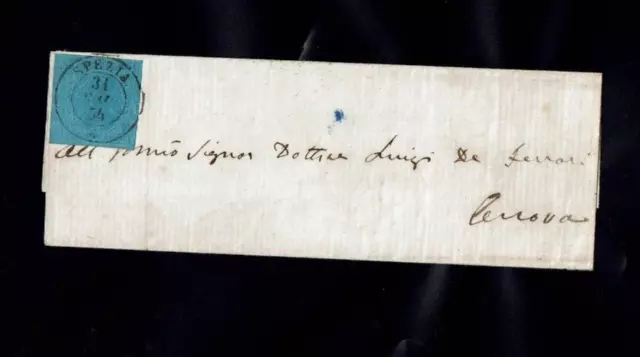 SPEZIA
31
54
All Signor Dottore Luigi De Ferrari
Genova